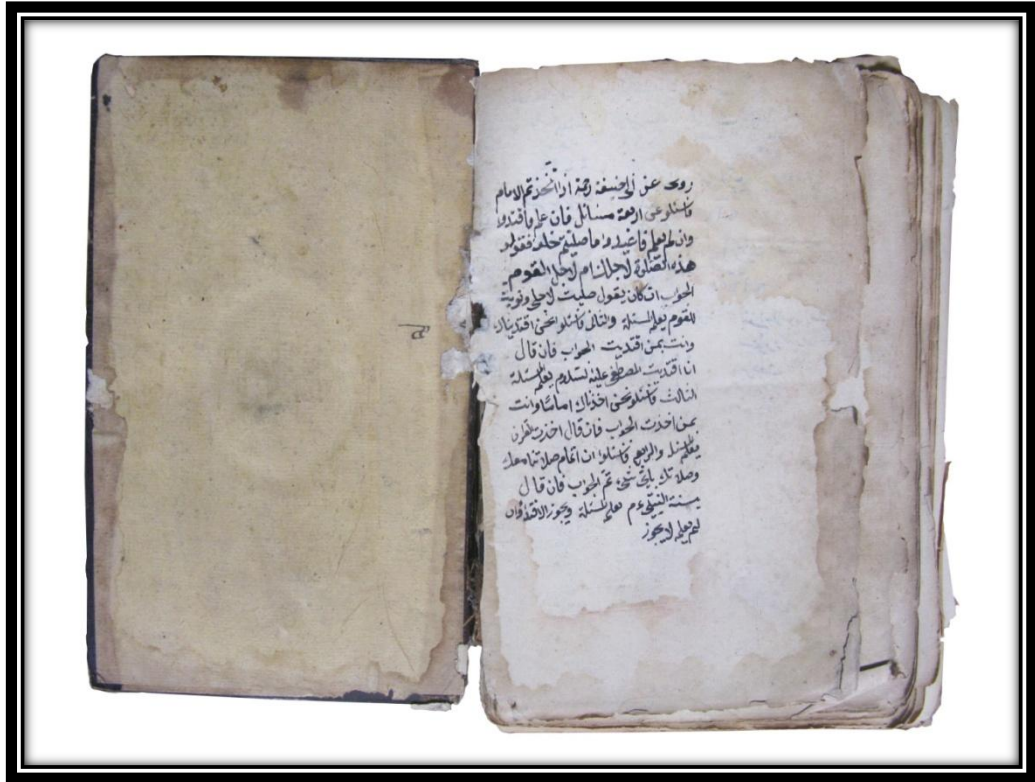 روى عن ابى حنيفة رحمه اذا اتخذتم الامام
فاسئلو عن اربعة مسائل فان علم فاقتدوا
وان لم يعلم فاعيدوا ما صليتم خلفه فقولو
هذه الصلوة لاجلك ام لاجل القوم
الجواب ان كان يقول صليت لاجلى ونويت
للقوم يعلم المسئلة والثانى فاسئلو نحن اقتديناك
وانت بمن اقتديت الجواب فان قال
انا اقتديت المصطفى عليه السلام يعلم المسئلة
الثالث فاسئلو نحن اخذناك اماما وانت
بمن اخذت الجواب فان قال اخذت القران
يعلم المسئلة والرابع فاسئلوا ان اتمام صلاتنا معك
وصلاتك باى شىء تم الجواب فان قال
بسنة النبى ءم يعلم المسئلة ويجوز الاقتداء وان
لم يعلم لا يجوز